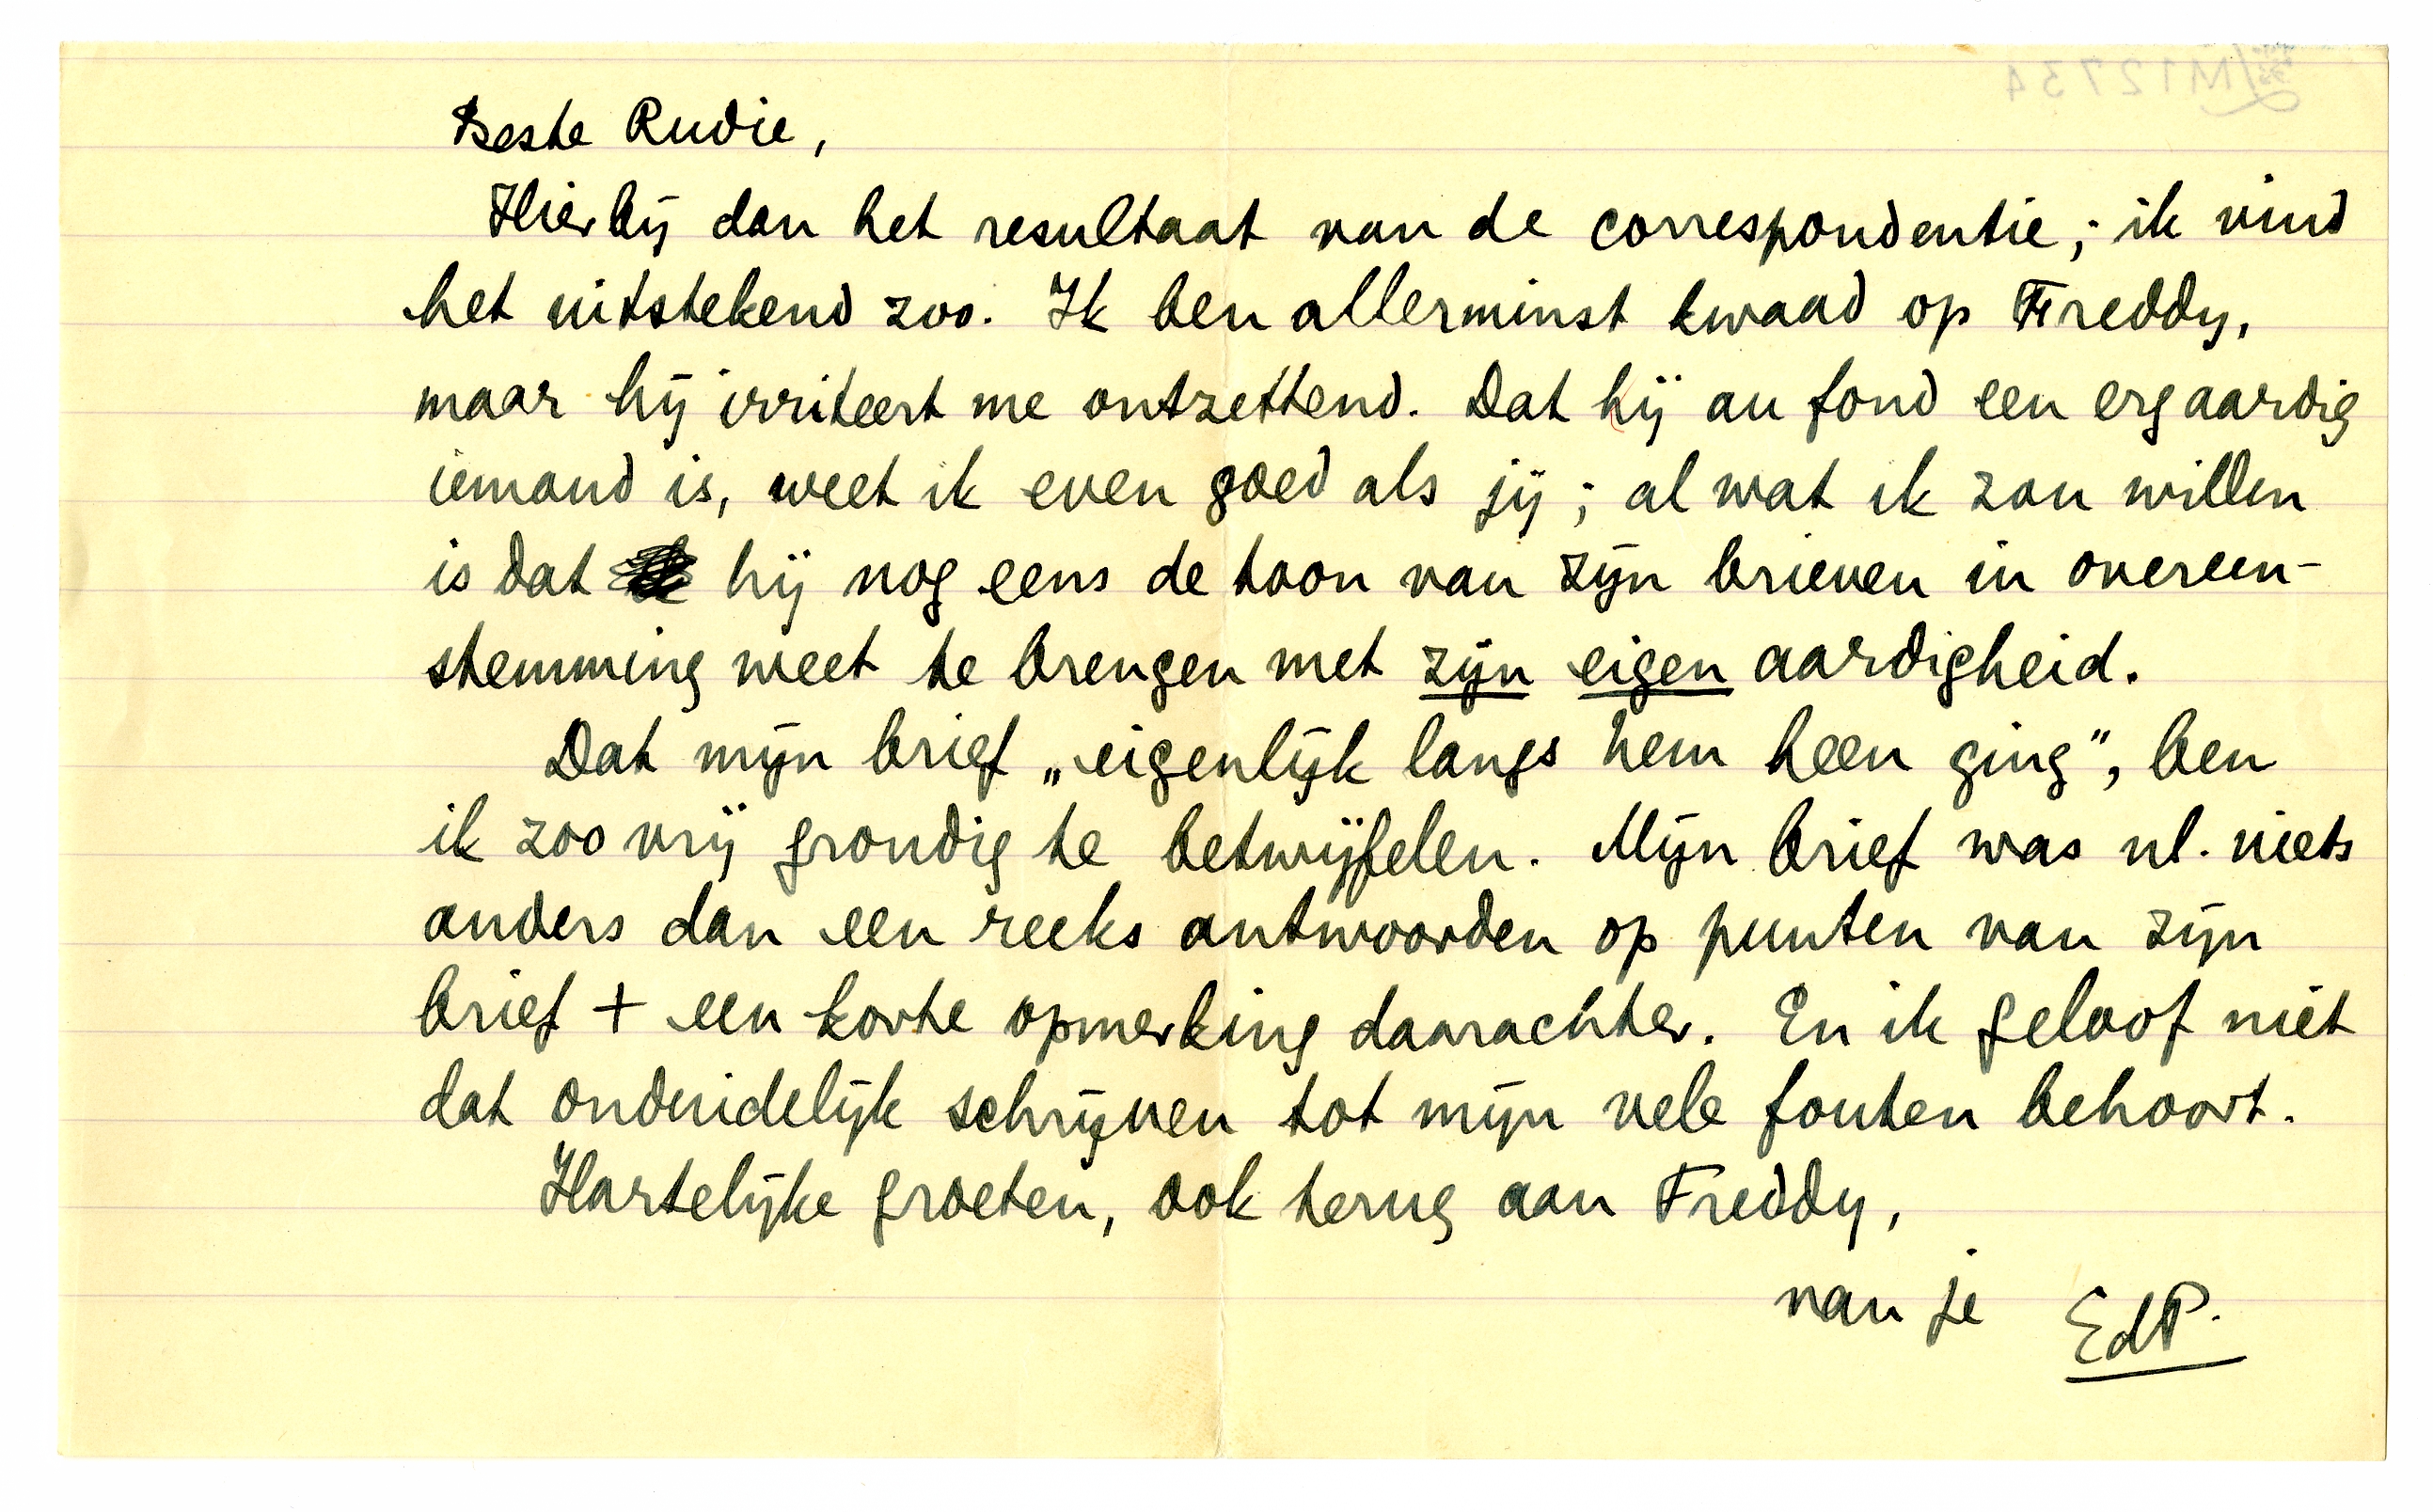 Beste Rudie,
Hierbij dan het resultaat van de correspondentie; ik vind
het uitstekend zoo. Ik ben allerminst kwaad op Freddy,
maar hij irriteert me ontzettend. Dat hij au fond een erg aardig
iemand is, weet ik even goed als jij; al wat ik zou willen
is dat hij nog eens de toon van zijn brieven in overeen-
stemming weet te brengen met zijn eigen aardigheid.
Dat mijn brief „eigenlijk langs hem heen ging”, ben
ik zoo vrij grondig te betwijfelen. Mijn brief was nl. niets
anders dan een reeks antwoorden op punten van zijn
brief + een korte opmerking daarachter. En ik geloof niet
dat onduidelijk schrijven tot mijn vele fouten behoort.
Hartelijke groeten, ook terug aan Freddy,
van je EdP.